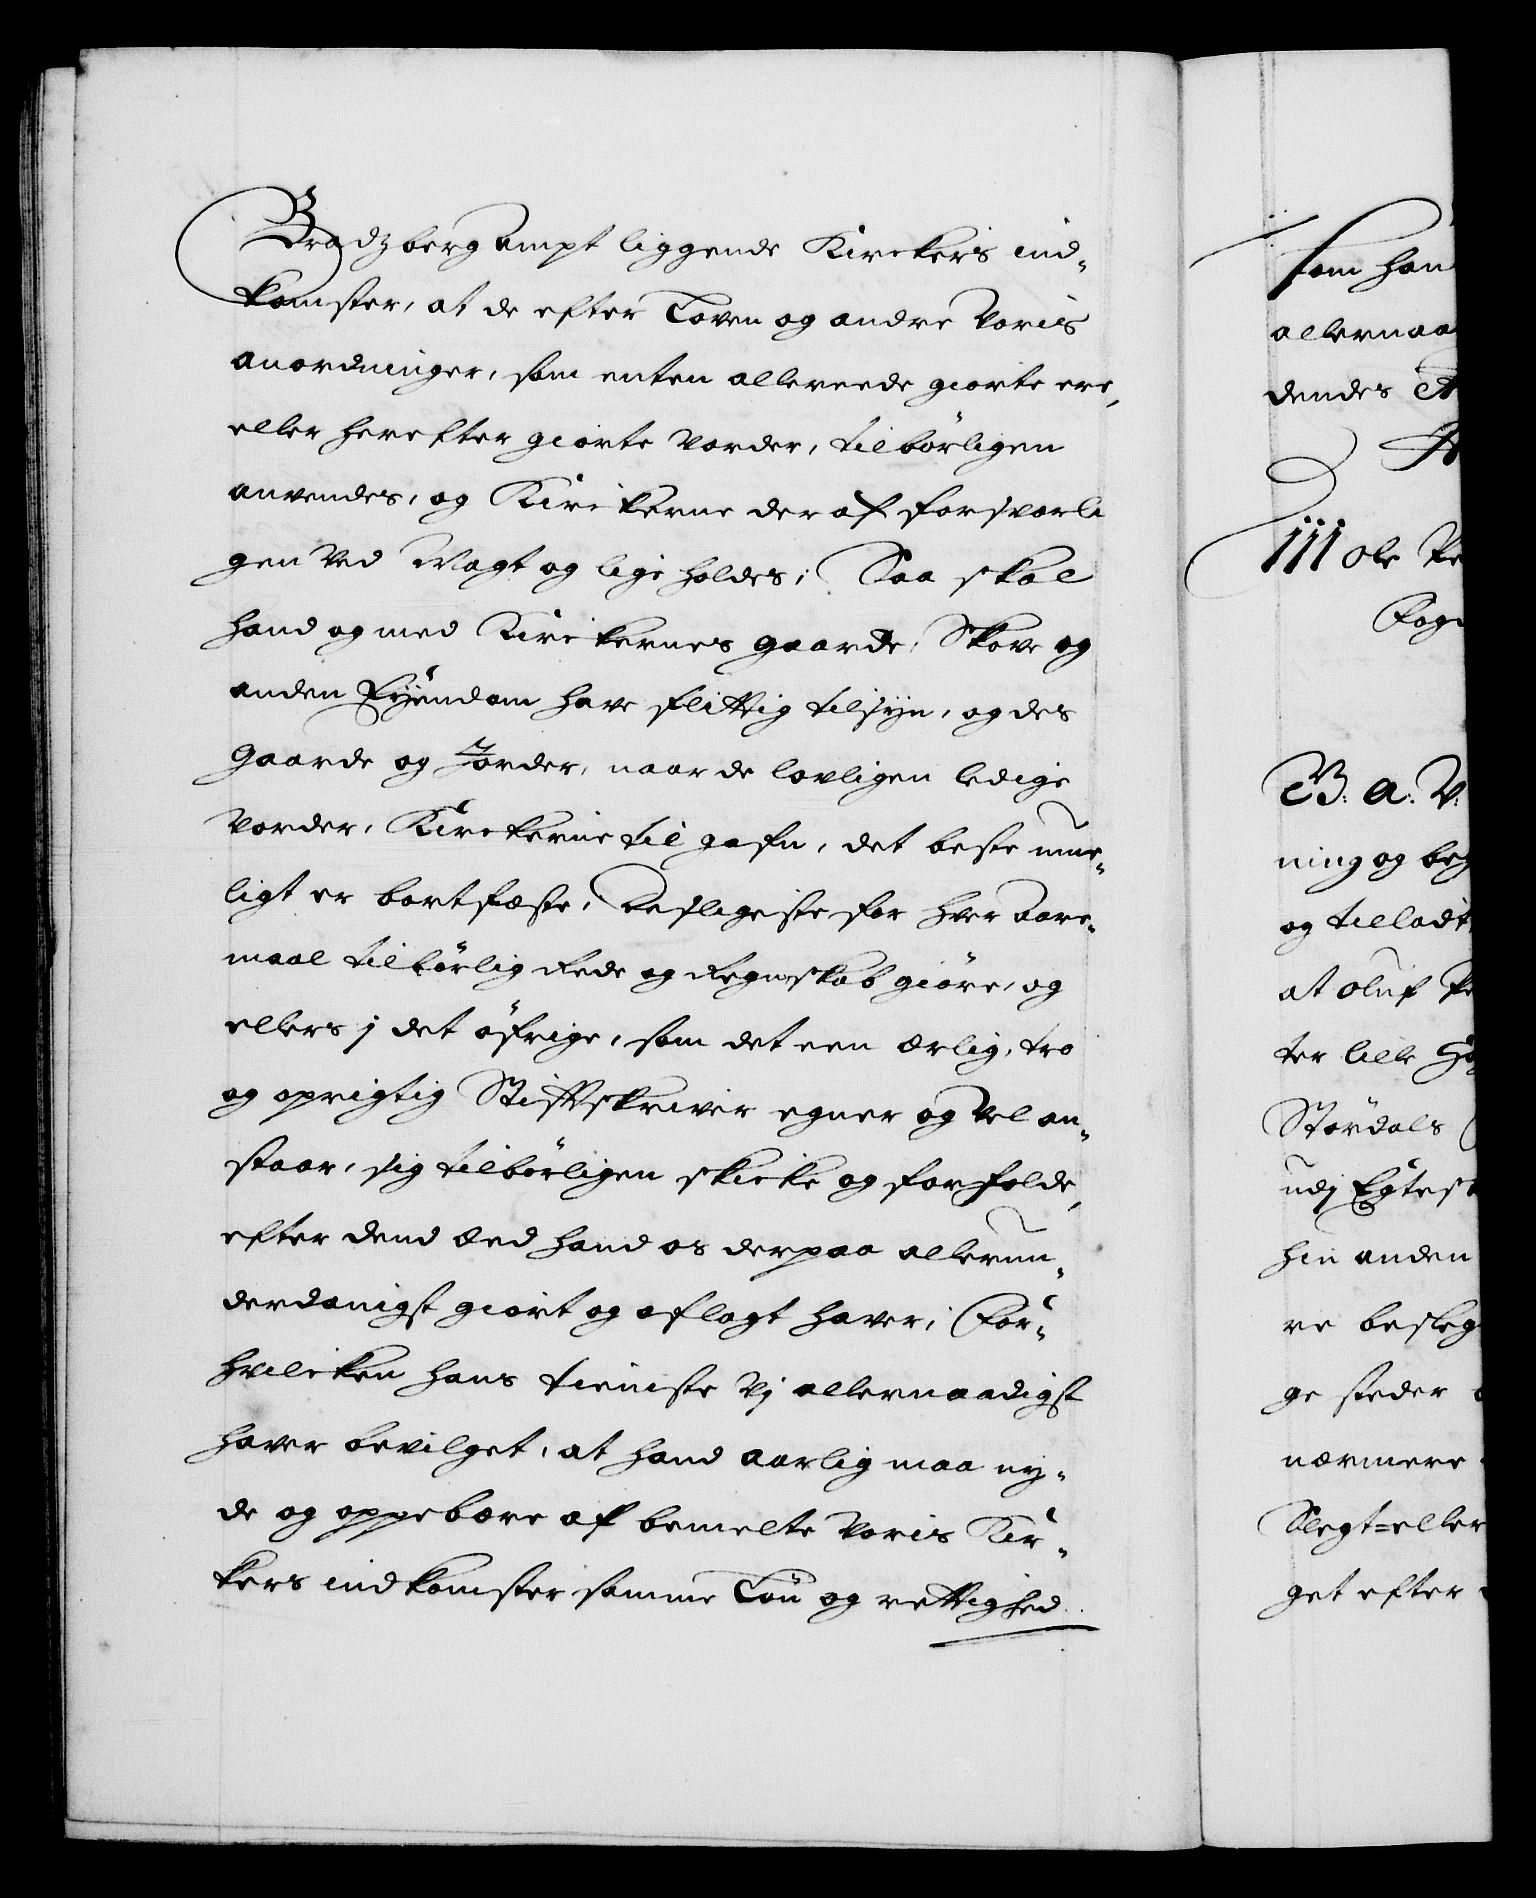 Bradzberg Ampt liggende Kirckers ind-
komster, at de efter Loven og andre Voris
anordninger, som enten allereede giorte ere,
eller herefter giorte vorder, tilbörligen
anvendes, og Kirckerne der af forsvarli
gen ved Magt og lige holdes; Saa skal
hand og med Kirckernes gaarde, Skove og
anden Eyendom have flittig tilsyn, og des
Gaarde og Jorder, naar de lovligen ledige
vorder, Kirckerne til gafn, det beste mue-
ligt er bortfæste, Desligeste for hver Aare-
maal tilbörlig Rede og Regenskab giöre, og
ellers j det öfrige, som det een ærlig, tro
og oprigtig Stiftskriver egner og vel an-
staar, sig tilbörligen skicke og forholde,
efter dend Eed hand os derpaa allerun-
derdanigst giort og aflagt haver; For-
hvilcken hans tieniste Vj allernaadigst
haver bevilget, at hand aarlig maa ny-
de og oppebære af bemelte Voris Kir-
kers indkomster samme Lön og rettighed

som han
allernaa
dendes

Ole Pe
Fog
B: A: V:
ning og beg
og tilladt
at Oluf Pe
ter lille
Stördals
udj Egtest
hin anden
re besleg
ge steder
nærmere
Slegt=eller
get efter